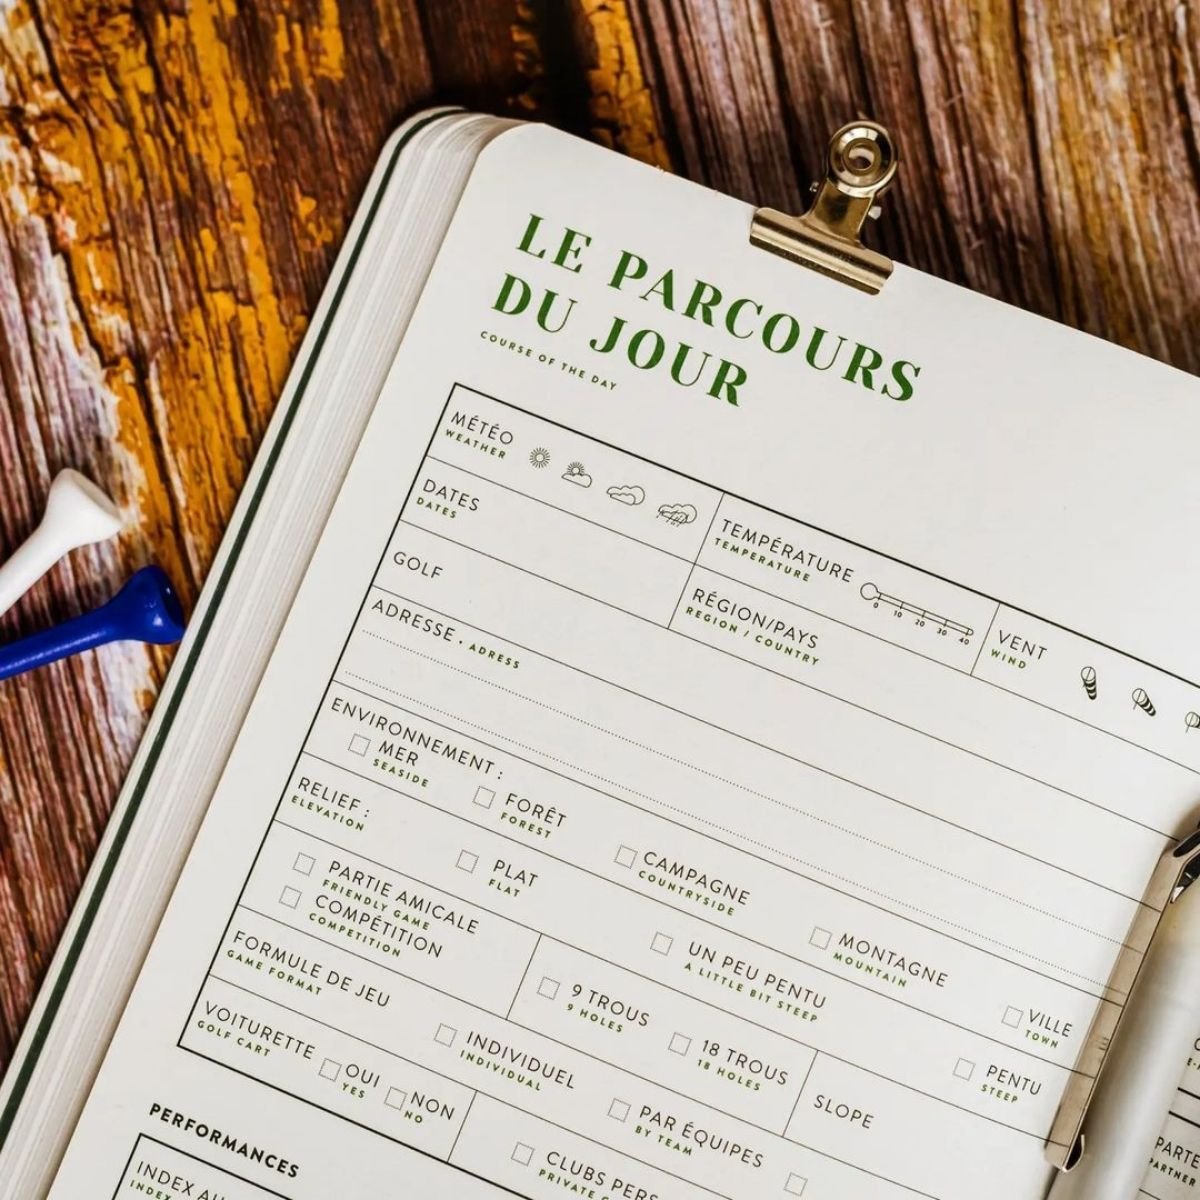 LE PARCOURS
DU JOUR
COURSE OF THE DAY
MÉTÉO
WEATHER
TEMPÉRATURE
TEMPERATURE
0 10 20 30 40
VENT
WIND
DATES
DATES
RÉGION/PAYS
REGION / COUNTRY
GOLF
ADRESSE . ADRESS
ENVIRONNEMENT :
MER
SEASIDE
FORÊT
FOREST
CAMPAGNE
COUNTRYSIDE
MONTAGNE
MOUNTAIN
VILLE
TOWN
RELIEF :
ELEVATION
PLAT
FLAT
UN PEU PENTU
A LITTLE BIT STEEP
PENTU
STEEP
PARTIE AMICALE
FRIENDLY GAME
COMPÉTITION
COMPETITION
9 TROUS
9 HOLES
18 TROUS
18 HOLES
SLOPE
FORMULE DE JEU
GAME FORMAT
INDIVIDUEL
INDIVIDUAL
PAR ÉQUIPES
BY TEAM
VOITURETTE
GOLF CART
OUI
YES
NON
NO
CLUBS PERS
PRIVATE
PERFORMANCES
INDEX AU
INDEX
PARTE
PARTNER